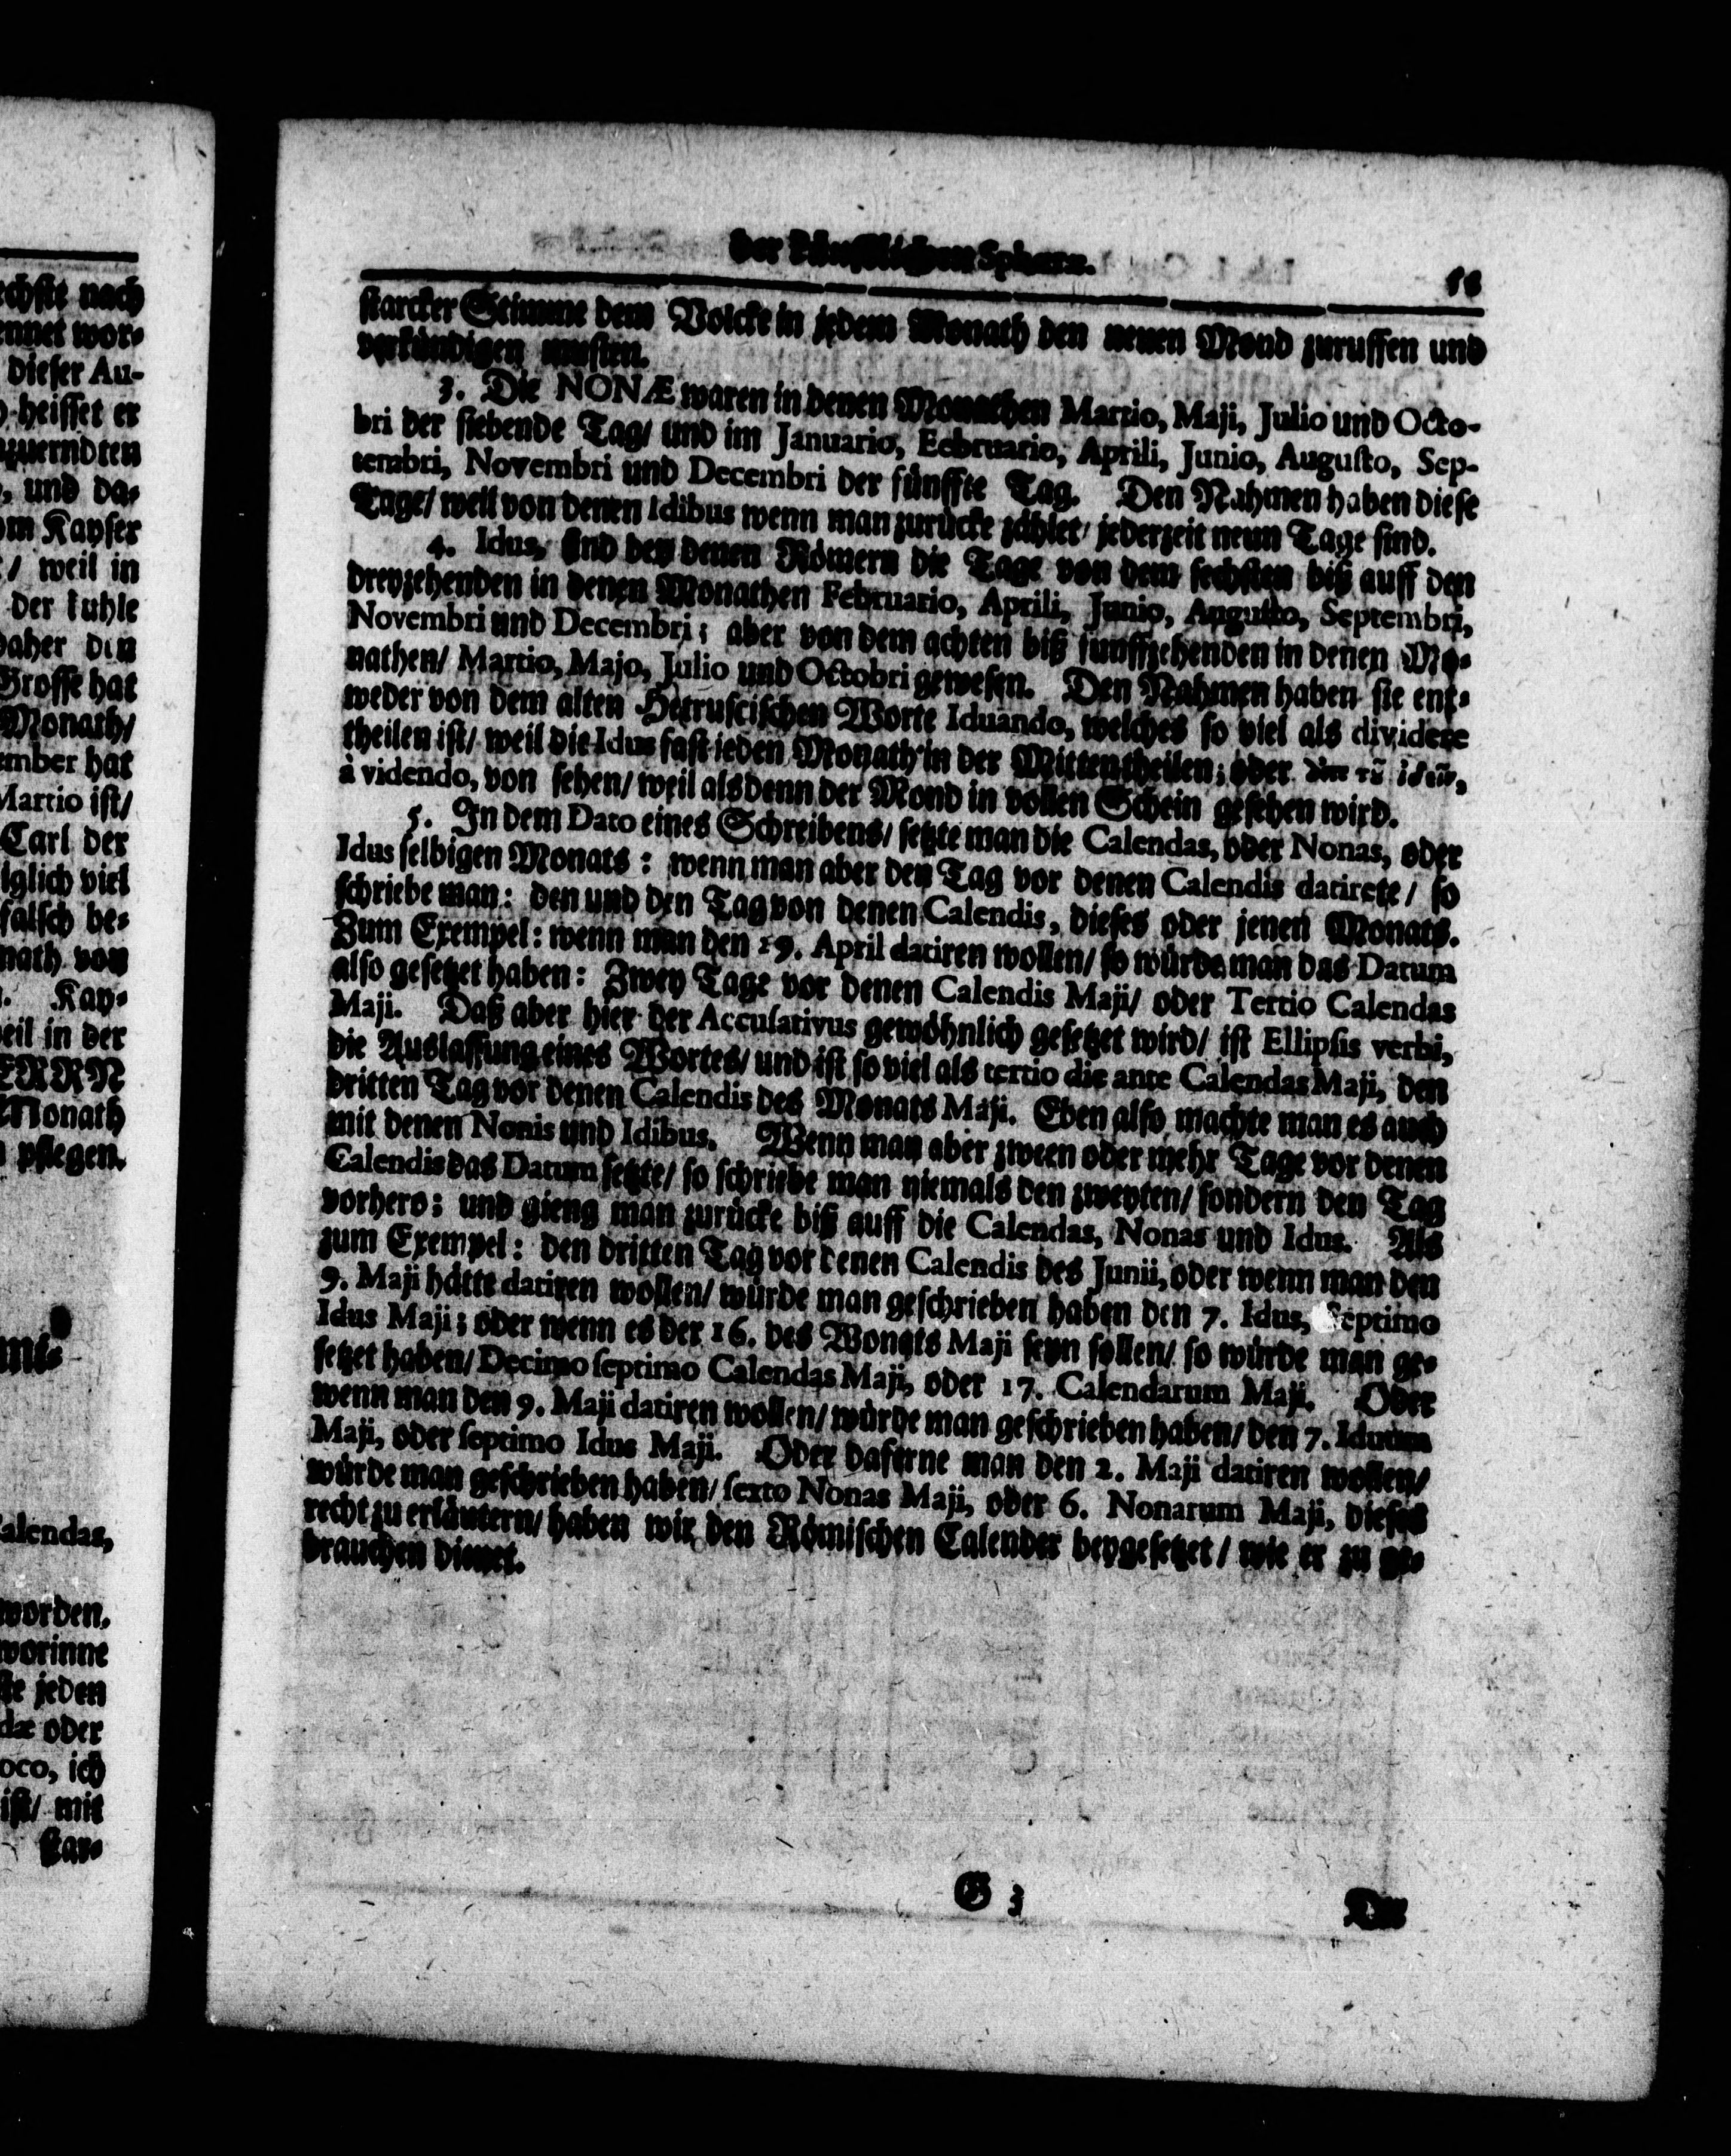 echste nach
ennet wor-
dieser Au-
heisset er
zuerndten
, und da-
m Kayser
/ weil in
der kuhle
daher den
Grosse hat
Monath/
ember hat
Martio ist/
Carl der
lglich viel
falsch be-
nath von
. Kay-
eil in der
ERRN
Monath
pflegen.
mi-
Calendas,
worden.
worinne
ste jeden
dæ oder
oco, ich
ist/ mit
star-
der künstlichen Sphæræ.
starcker Stimme dem Volcke in jedem Monath den neuen Mond zuruffen und
verkündigen musten.
3. Die NONÆ waren in denen Monathen Martio, Maji, Julio und Octo-
bri der siebende Tag/ und im Januario, Eebruario, Aprili, Junio, Augusto, Sep-
tembri, Novembri und Decembri der fünffte Tag. Den Nahmen haben diese
Tage/ weil von denen Idibus wenn man zurücke zählet/ jederzeit neun Tage sind.
4. Idus, sind bey denen Römern die Tage von dem sechsten biß auff den
dreyzehenden in denen Monathen Februario, Aprili, Junio, Augusto, Septembri,
Novembri und Decembri; aber von dem achten biß funffzehenden in denen Mo-
nathen/ Martio, Majo, Julio und Octobri gewesen. Den Nahmen haben sie ent-
weder von dem alten Hetruscischen Worte Iduando, welches so viel als dividere
theilen ist/ weil die Idus fast ieden Monath in der Mitten theilen; oder
à videndo, von sehen/ weil alsdenn der Mond in vollen Schein gesehen wird.
5. In dem Dato eines Schreibens/ setzte man die Calendas, oder Nonas, oder
Idus selbigen Monats: wenn man aber den Tag vor denen Calendis datirete/ so
schriebe man: den und den Tag von denen Calendis, dieses oder jenen Monats.
Zum Exempel: wenn man den 29. April datiren wollen/ so würde man das Datum
also gesetzet haben: Zwey Tage vor denen Calendis Maji/ oder Tertio Calendas
Maji. Daß aber hier der Accusativus gewöhnlich gesetzet wird/ ist Ellipsis verbi,
die Auslassung eines Wortes/ und ist so viel als tertio die ante Calendas Maji, den
dritten Tag vor denen Calendis des Monats Maji. Eben also machte man es auch
mit denen Nonis und Idibus. Wenn man aber zween oder mehr Tage vor denen
Calendis das Datum setzte/ so schriebe man niemals den zweyten/ sondern den Tag
vorhero; und gieng man zurücke biß auff die Calendas, Nonas und Idus. Als
zum Exempel: den dritten Tag vor denen Calendis des Junii, oder wenn man den
9. Maji hätte datiren wollen/ würde man geschrieben haben den 7. Idus, Septimo
Idus Maji; oder wenn es der 16. des Wonats Maji seyn sollen/ so würde man ge-
setzet haben/ Decimo septimo Calendas Maji, oder 17. Calendarum Maji. Oder
wenn man den 9. Maji datiren wollen/ würde man geschrieben haben/ den 7. Iduum
Maji, oder septimo Idus Maji. Oder daferne man den 2. Maji datiren wollen/
würde man geschrieben haben/ sexto Nonas Maji, oder 6. Nonarum Maji, dieses
recht zu erläutern/ haben wir den Römischen Calender beygesetzet/ wie er zu ge-
brauchen dienet.
G 3